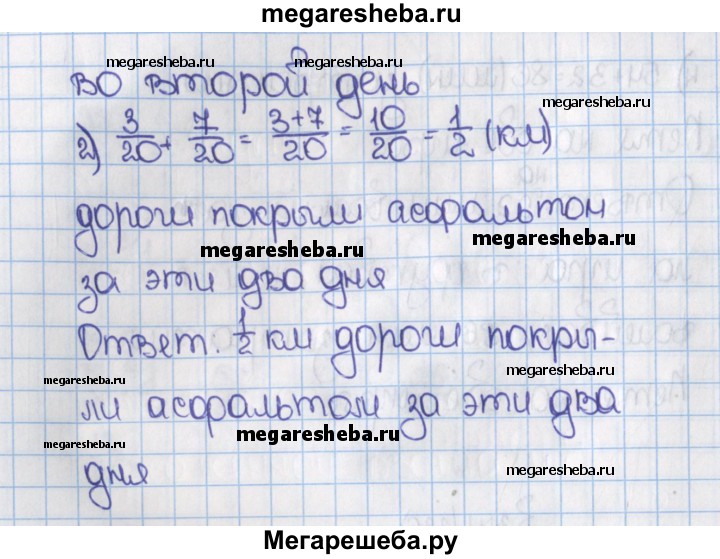 megaresheba.ru
megaresheba.ru
megaresheba.ru
во второй день
megaresheba.ru
2) 3/20 + 7/20 = 3+7/20 = 10/20 = 1/2 (км)
дороги покрыли асфальтом
megaresheba.ru
megaresheba.ru
за эти два дня
Ответ. 1/2 км дороги покры-
megaresheba.ru
megaresheba.ru
ли асфальтом за эти два
megaresheba.ru
megaresheba.ru
дня
megaresheba.ru
Мегарешеба.ру